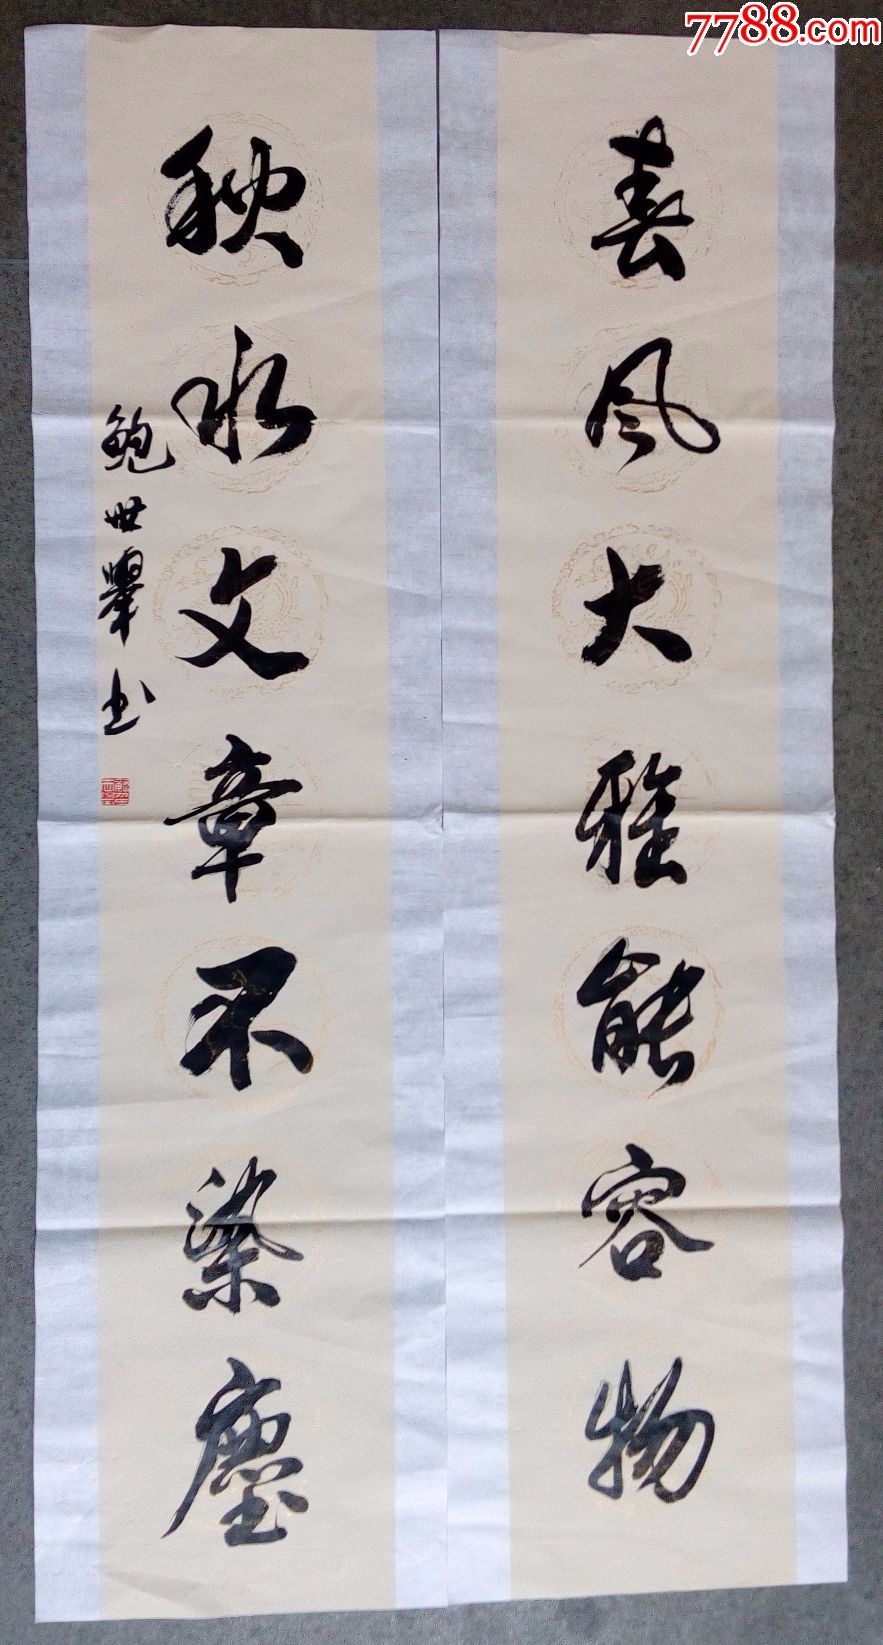 7788.com
春风大雅能容物
秋水文章不染塵
鲍世舉书